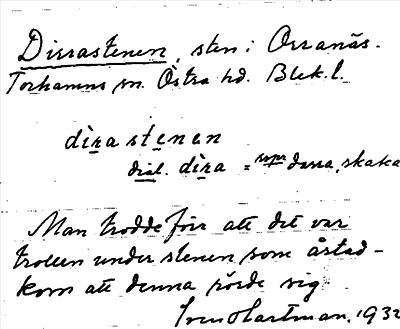 Dirrastenen, sten i Orranäs.
Torhamns sn. Östra hd. Blek.l.
dirastenen
dial. dira = darra, skaka
Man trodde förr att det var
trollen under stenen som åstad-
kom att denna rörde sig.
Sven O Hartman. 1932